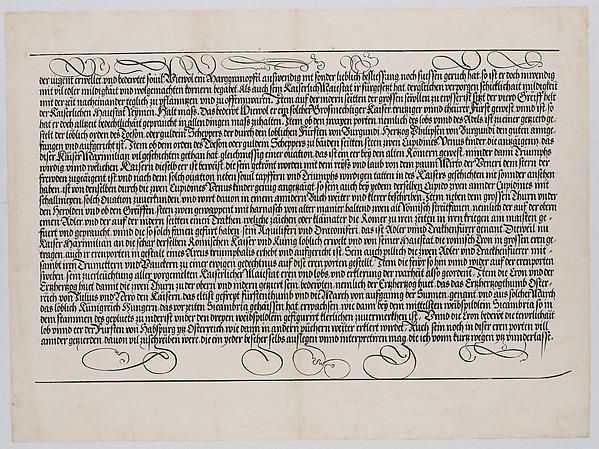 der tugent erweitet und bedewtet souil. Wiewol ein Marggranopfil auswendig nit sonder lieblich beklessung noch suessen geruch hat, so ist er doch inwendig
mit vil edler mildigkait und wolgemachten kornern begabet. Als auch sein Kaiserlich Maiestat ir fürgesetzt hat, dergleichen verporgen schicklichait mildigkeit
mit der zeit nacheinander teglich zu pflanntzen und zu offenwaren. Item auf der midern seitten vor grossen sewlen zu vordrist sitzt der viero Greiff helt
der Kaiserlichen Haiestat Reymen. Halt maß. Das bedewt. Wiewol er ein solcher Großmechtiger Kaiser, trutziger und thewrer Fürst gewest, und ist, so
hat er doch allzeit bedechtlich gepraucht in allen dingen maß zuhalten. Item ob den zwayen porten, nemlich des lobs und des Adels ist zu einer getzierd ge-
stelt der löblich orden des Toyson, oder guldein Scheppers, der durch den loblichen Fürsten von Burgundi, Hertzog Philipsen von Burgundi den guten annge-
fangen und aufgericht ist. Item ob dem orden des Toyson oder guldein Scheppers zu baiden seitten steen zwen Cupidines Venus kinder die antzaigen, das
diser Kaiser Maximilian vil geschichten gethan hat, gleichmessig einer ouation, das ist ein eer bey den alten Römern gewest, minder dann Triumphs
wirdig, und welichen Kaisern dieselb eer ist beweist, die sein gekrönt worden mit dem reiß und laub von dem paum Mirto der Veneri dem stern der
frewden zugeaigent ist, und nach dem solch ouation neben souil tapffern und Triumphs wirdigen tatten in des Kaisers geschichten mit sonder ansehen
haben, ist von denselben durch die zwen Cupidines Venus kinder genug angezaigt, so sein auch bey yedem derselben Cupido zwen annder Cupidines mit
schallmeyen solh Ouation zuuerkunden, und wirt davon in einem anndern Buch weitter und klerer beschriben. Item neben dem grossen Thurn under
den Herolden und ob den Greiffen, steen zwen gewappnent mit harnasch von alter manier haltend zwen alt Römisch streitfanen, nemlich der auf der obern
einen Adler, und der auf der nidern seitten einen Trakhen, welche zaichen der klainater die Römer zu iren zeiten in iren kriegen am maisten ge-
fürt und gepraucht, und die so solch fanen gefürt haben, sein Aquiliferi und Draconiferi, das ist Adler und Trakhenfürer genant. Dieweil nu
Kaiser Maximilian an die schar derselben Römischen Kaiser und Kunig loblich erwelt und von seiner Maiestat die römisch Cron in grossen eren ge-
tragen, auch ir eerenporten in gestalt eines Arcus triumphalis erhebt und aufgericht ist, Sein auch pillich die zwen Adler und Trackhenfürer mit-
sambt iren Trumettern und Pauckern zu einer ewigen gedechtnus auf diß eren porten gestelt. Item die sechs so hin und wider auf der eeren porten
steen, sein zuerleuchtung aller vorgemelten Kaiserlicher Maiestat eren und lobs, und erklerung der warhait also geordent. Item die Cron und der
Ertzhertzog huet damit die zwen Thurn zu der obern und nidern getziert sein, bedewten nemlich der Ertzhertzog huet, das das Ertzherzogthumb Oster-
reich von Iulius und Nero den Kaisern, das eltist gefreyt fürstenthumb und die March von aufganng der Sunnen genant, und aus solcher March
das loblich Kunigreich Hungern, das vor zeiten Sicambria gehaissen hat, erwachsen, wie dann bey dem mittelsten weibspilden Sicambria, so in
dem stammen des geplüets zu underst under den dreyen weibspilden gefiguriert klerlichen zuuernemen ist. Und die Cron bedewt die tewrlichait
lob und eer der Fürsten von Habspurg und Osterreich, wie dann in andern püchern weiter erklert wirdet. Auch sein noch in diser eren porten vill
annder getzierden, dauon vil zuschreiben were, die ein yeder bescher selbs auslegen und interpretiern mag, die ich vonn kurtz wegen hie unnderlass.